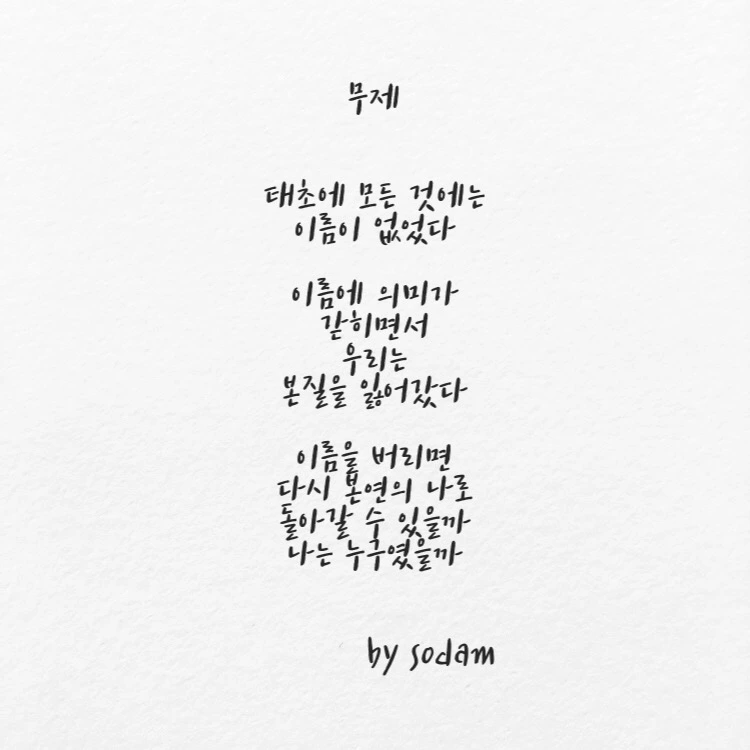 무제
태초에 모든 것에는
이름이 없었다
이름에 의미가
갇히면서
우리는
본질을 잃어갔다
이름을 버리면
다시 본연의 나로
돌아갈 수 있을까
나는 누구였을까
by sodam